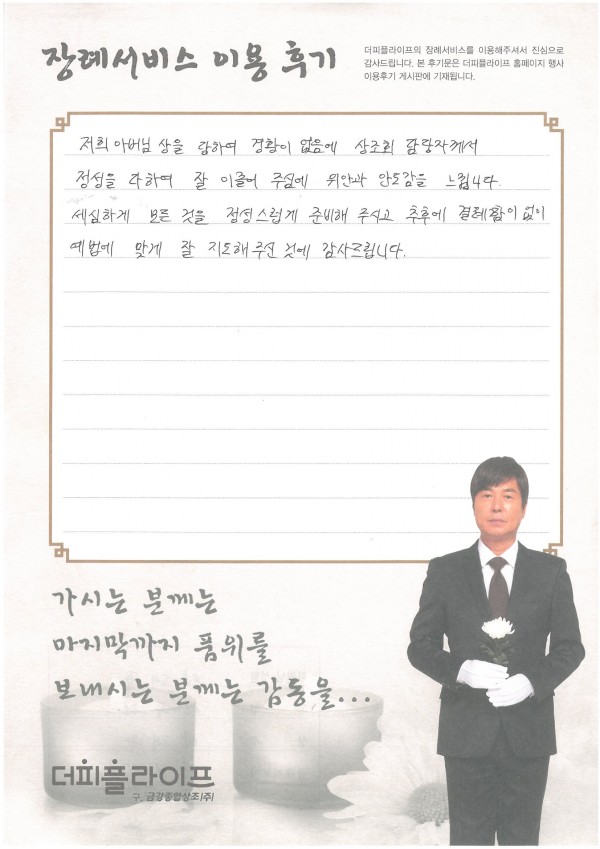 장례서비스 이용 후기
더피플라이프의 장례서비스를 이용해주셔서 진심으로
감사드립니다. 본 후기문은 더피플라이프 홈페이지 행사
이용후기 게시판에 기재됩니다.
저희 아버님 상을 당하여 경황이 없음에 상조회 담당자께서
정성을 다하여 잘 이끌어 주심에 위안과 안도감을 느낍니다.
세심하게 모든 것을 정성스럽게 준비해 주시고 추후에 결례함이 없이
예법에 맞게 잘 지도해 주신 것에 감사드립니다.
가시는 분께는
마지막까지 품위를
보내시는 분께는 감동을...
더피플라이프
구. 금강종합상조(주)